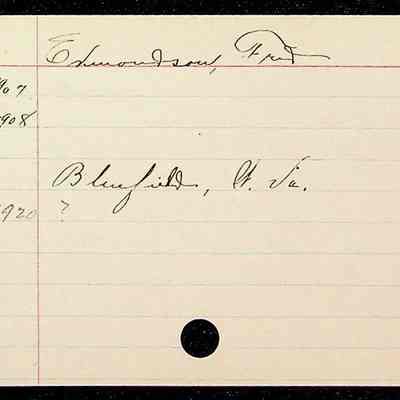 Edmondson, Fred
907
908
Bluefield, W. Va.
1920 ?